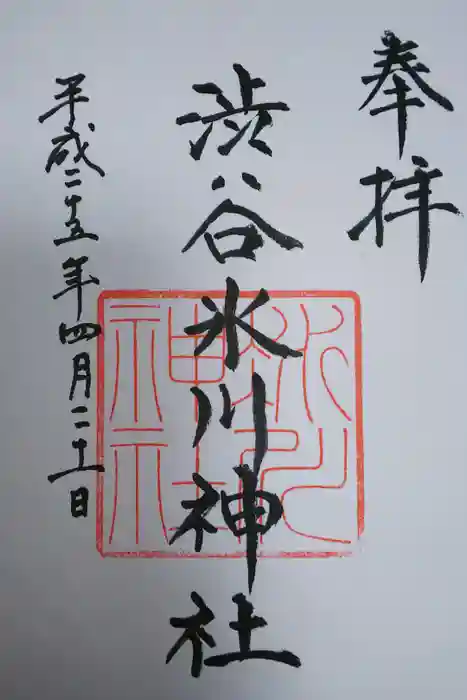 奉拝
渋谷氷川神社
氷川神社
平成二十五年四月二十一日